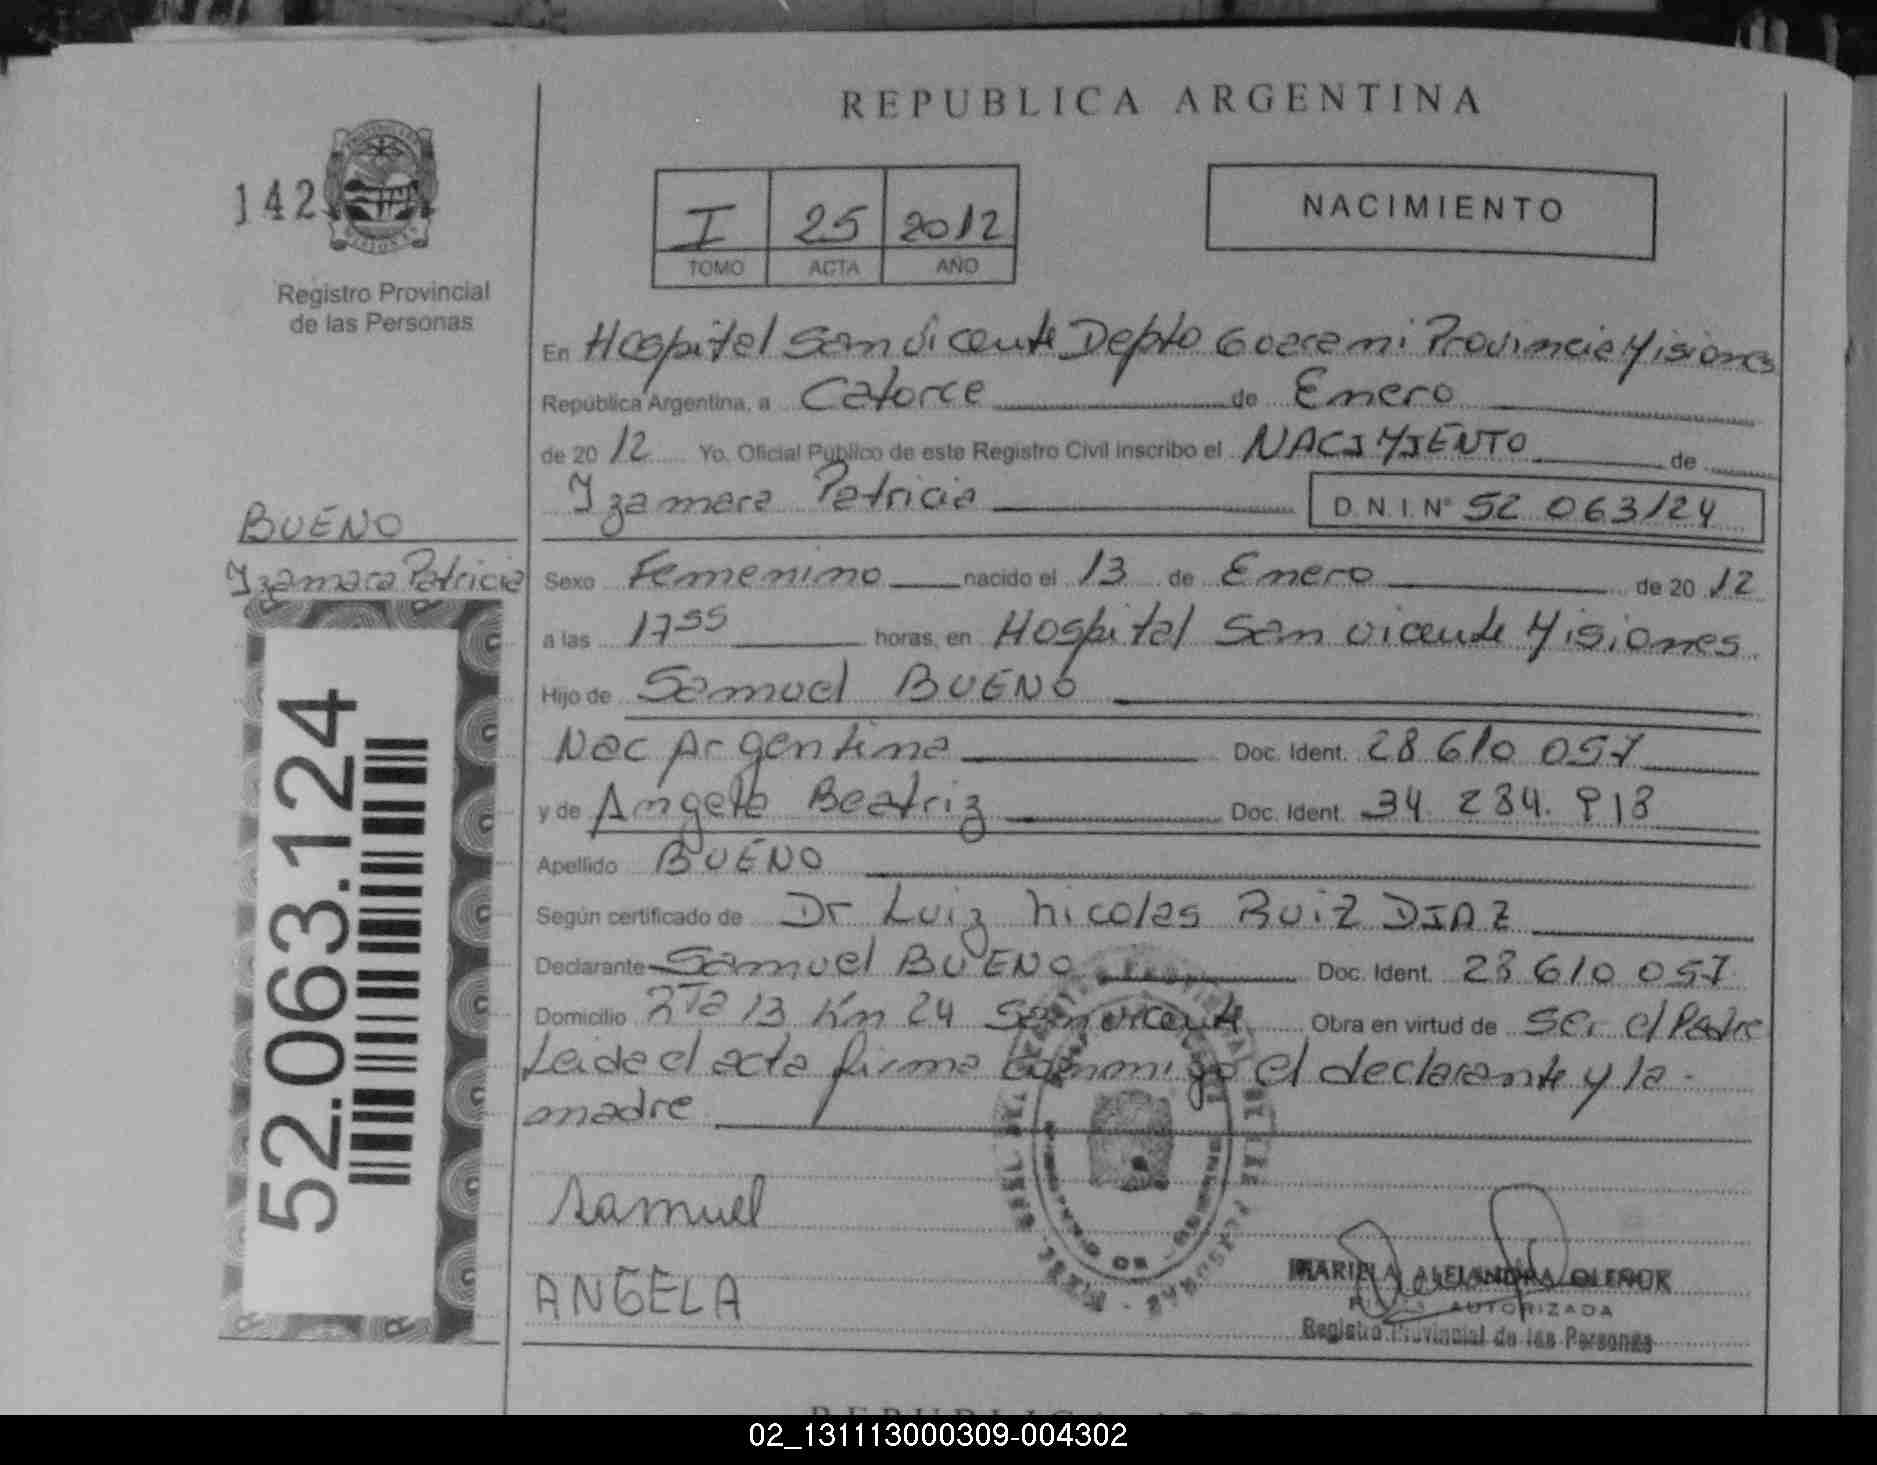 REPUBLICA ARGENTINA
142
Registro Provincial
de las Personas
I 25 2012
TOMO ACTA AÑO
NACIMIENTO
En Hospital San Vicente Depto Guarani Provincia Misiones
República Argentina, a Catorce de Enero
de 20 12 Yo, Oficial Público de este Registro Civil inscribo el NACIMIENTO de
Izamara Patricia D.N.I. Nº 52 063124
BUENO
Izamara Patricia
Sexo Femenino nacido el 13 de Enero de 20 12
a las 17 55 horas, en Hospital San Vicente Misiones
Hijo de Samuel BUENO
Nac Argentina Doc. Ident. 28 610 057
y de Angela Beatriz Doc. Ident. 34. 284. 913
Apellido BUENO
Según certificado de Dr Luiz Nicolas RUIZ DIAZ
Declarante Samuel BUENO Doc. Ident. 28 610 057
Domicilio Rta 13 Km 24 San Vicente Obra en virtud de Ser el Padre
Leida el acta firma conmigo el declarante y la
madre
Samuel
ANGELA
52.063.124
ALEJANDRA
AUTORIZADA
Registro Provincial de las Personas
02_131113000309-004302